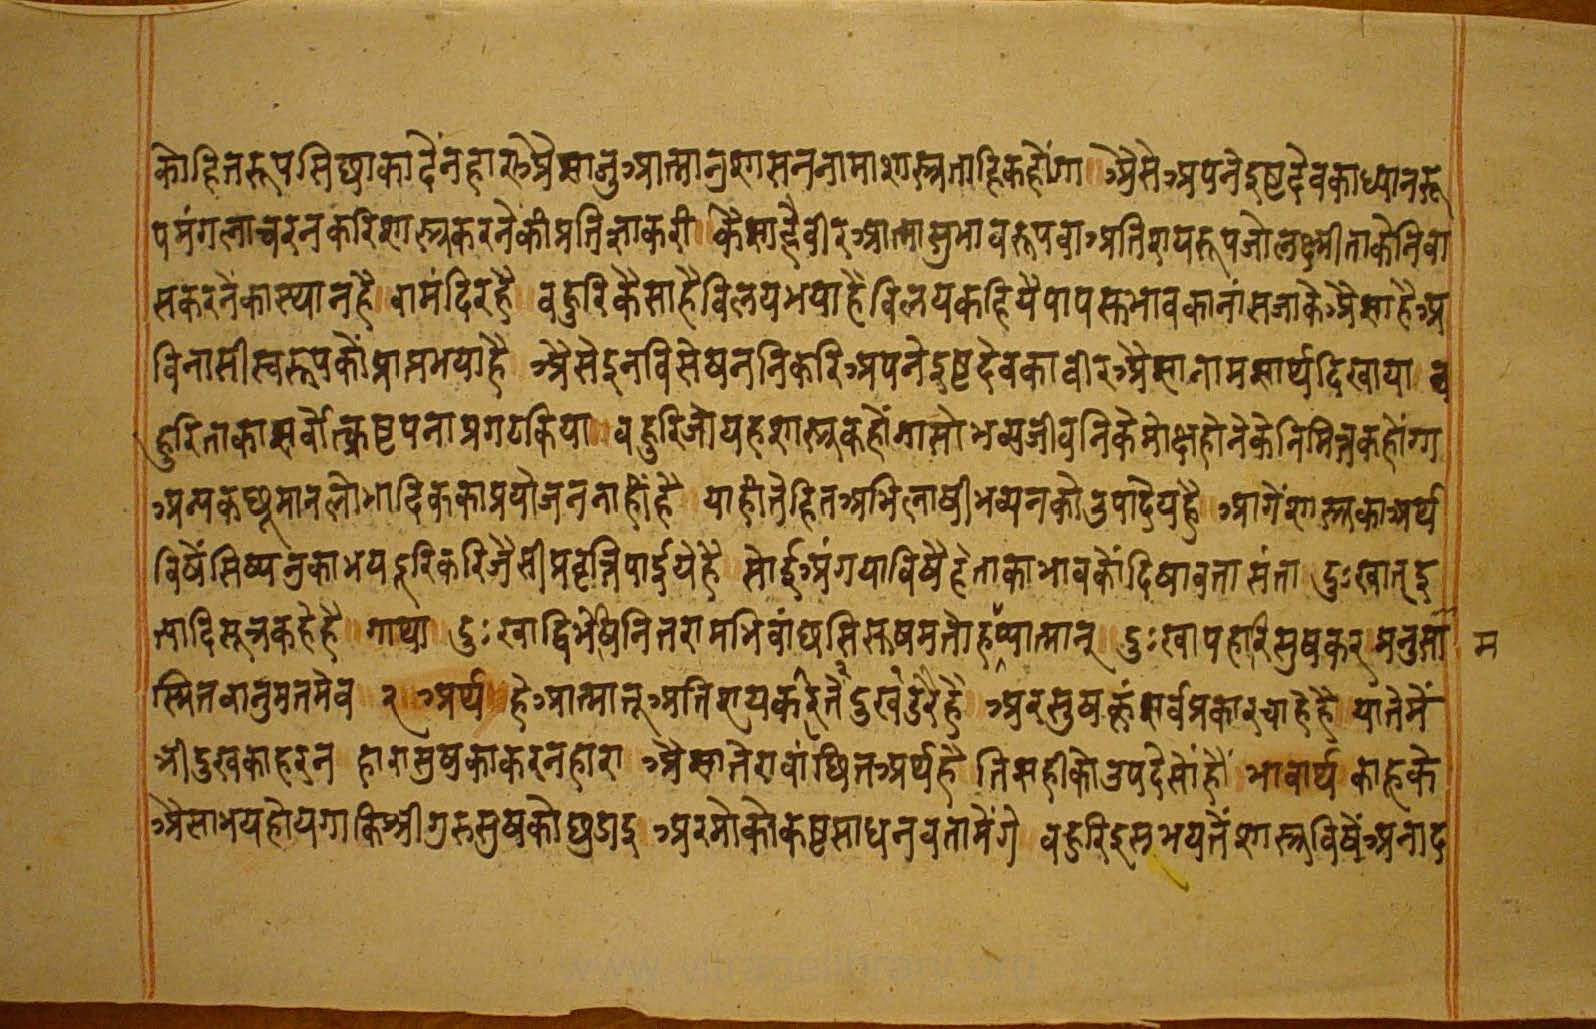 कोहितरूपसिछ्याकादैंनहारुऐसाजुआत्मानुशासननामाशास्त्रताहिकहौंगा ऐसेअपनेइष्टदेवकाध्यानरू
पमंगलाचरनकरिशास्त्रकरनेकीप्रतिज्ञाकरी कैसाहैवीरआत्मासुभावरूपवाअतिशयरूपजोलक्ष्मीताकेनिवा
सकरनेकास्थानहै वामंदिरहै बहुरिकैसाहैविलयभयाहैविलयकहियैपापस्वभावकानांसजाकेऐसाहैअ
विनासीस्वरूपकौंप्राप्तभयाहै ऐसेइनविसेषननिकरिअपनेइष्टदेवकावीरऐसानामसार्थदिखाया ब
हुरिताकासर्वोत्कृष्टपनाप्रगटकिया बहुरिजोयहशास्त्रकहौंगासोभव्यजीवनिकैमोक्षहोनेकेनिमित्तकहौंगा
अन्यकछूमानलोभादिककाप्रयोजननाहींहै याहीतैहितअभिलाषीभव्यनकोउपादेयहै आगेंशास्त्रकाअर्थ
विषैंसिष्यनकाभयदूरिकरिजैसीप्रवृत्तिपाईयेहै सोईअंगयाविषैहेताकाभावकोंदिषावतासंता दुःखात्इ
त्यादिसूत्रकहेहै गाथा दुःखाद्विभेषिनितरामभिवांछसिसुषमतोहमप्यात्मान् दुःखापहारिसुषकरमनुसा म
स्मितवानुमतमेव २ अर्थ हेआत्मातूअतिशयकरितैदुखंडरैहै अरसुषकूंसर्वप्रकारचाहेहै यांतेमैं
भीदुखकाहरन हारासुषकाकरनहारा ऐसातेरावांछितअर्थहै तिसहीकोउपदेसोंहौं भावार्थ काहूके
ऐसाभयहोयगाकिश्रीगुरुसुषकोछुडाइ अरमोकोकष्टसाधनबतामेंगे बहुरिइसभयतैंशास्त्रविषैंअनाद